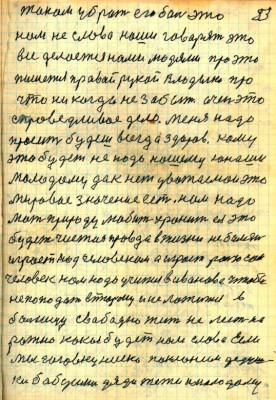 таком убрат его бог это 83
нам не слова наши говарят это
все делоется нами людями про это
пишется правай рукой Владыко про
что ни когда не забыт счет это
справедливае дело. Меня надо
просить будеш всегда здоров, кому
это будет не надо нашему юноши
молодому, дак нет уважаемай это
мировае значение ест. нам надо
мать природу любит хранит ея это
будет чистая правда в жизни не болезн
играет над человеком а играет
человек нам надо учится в иванова чтобы
не пападат в тюрму и не ложится в
болницу свабадно жит не лест на
ражно какая будет нам слава если
мы головку низко поклоним
ки бабушки дяди тети и молодому